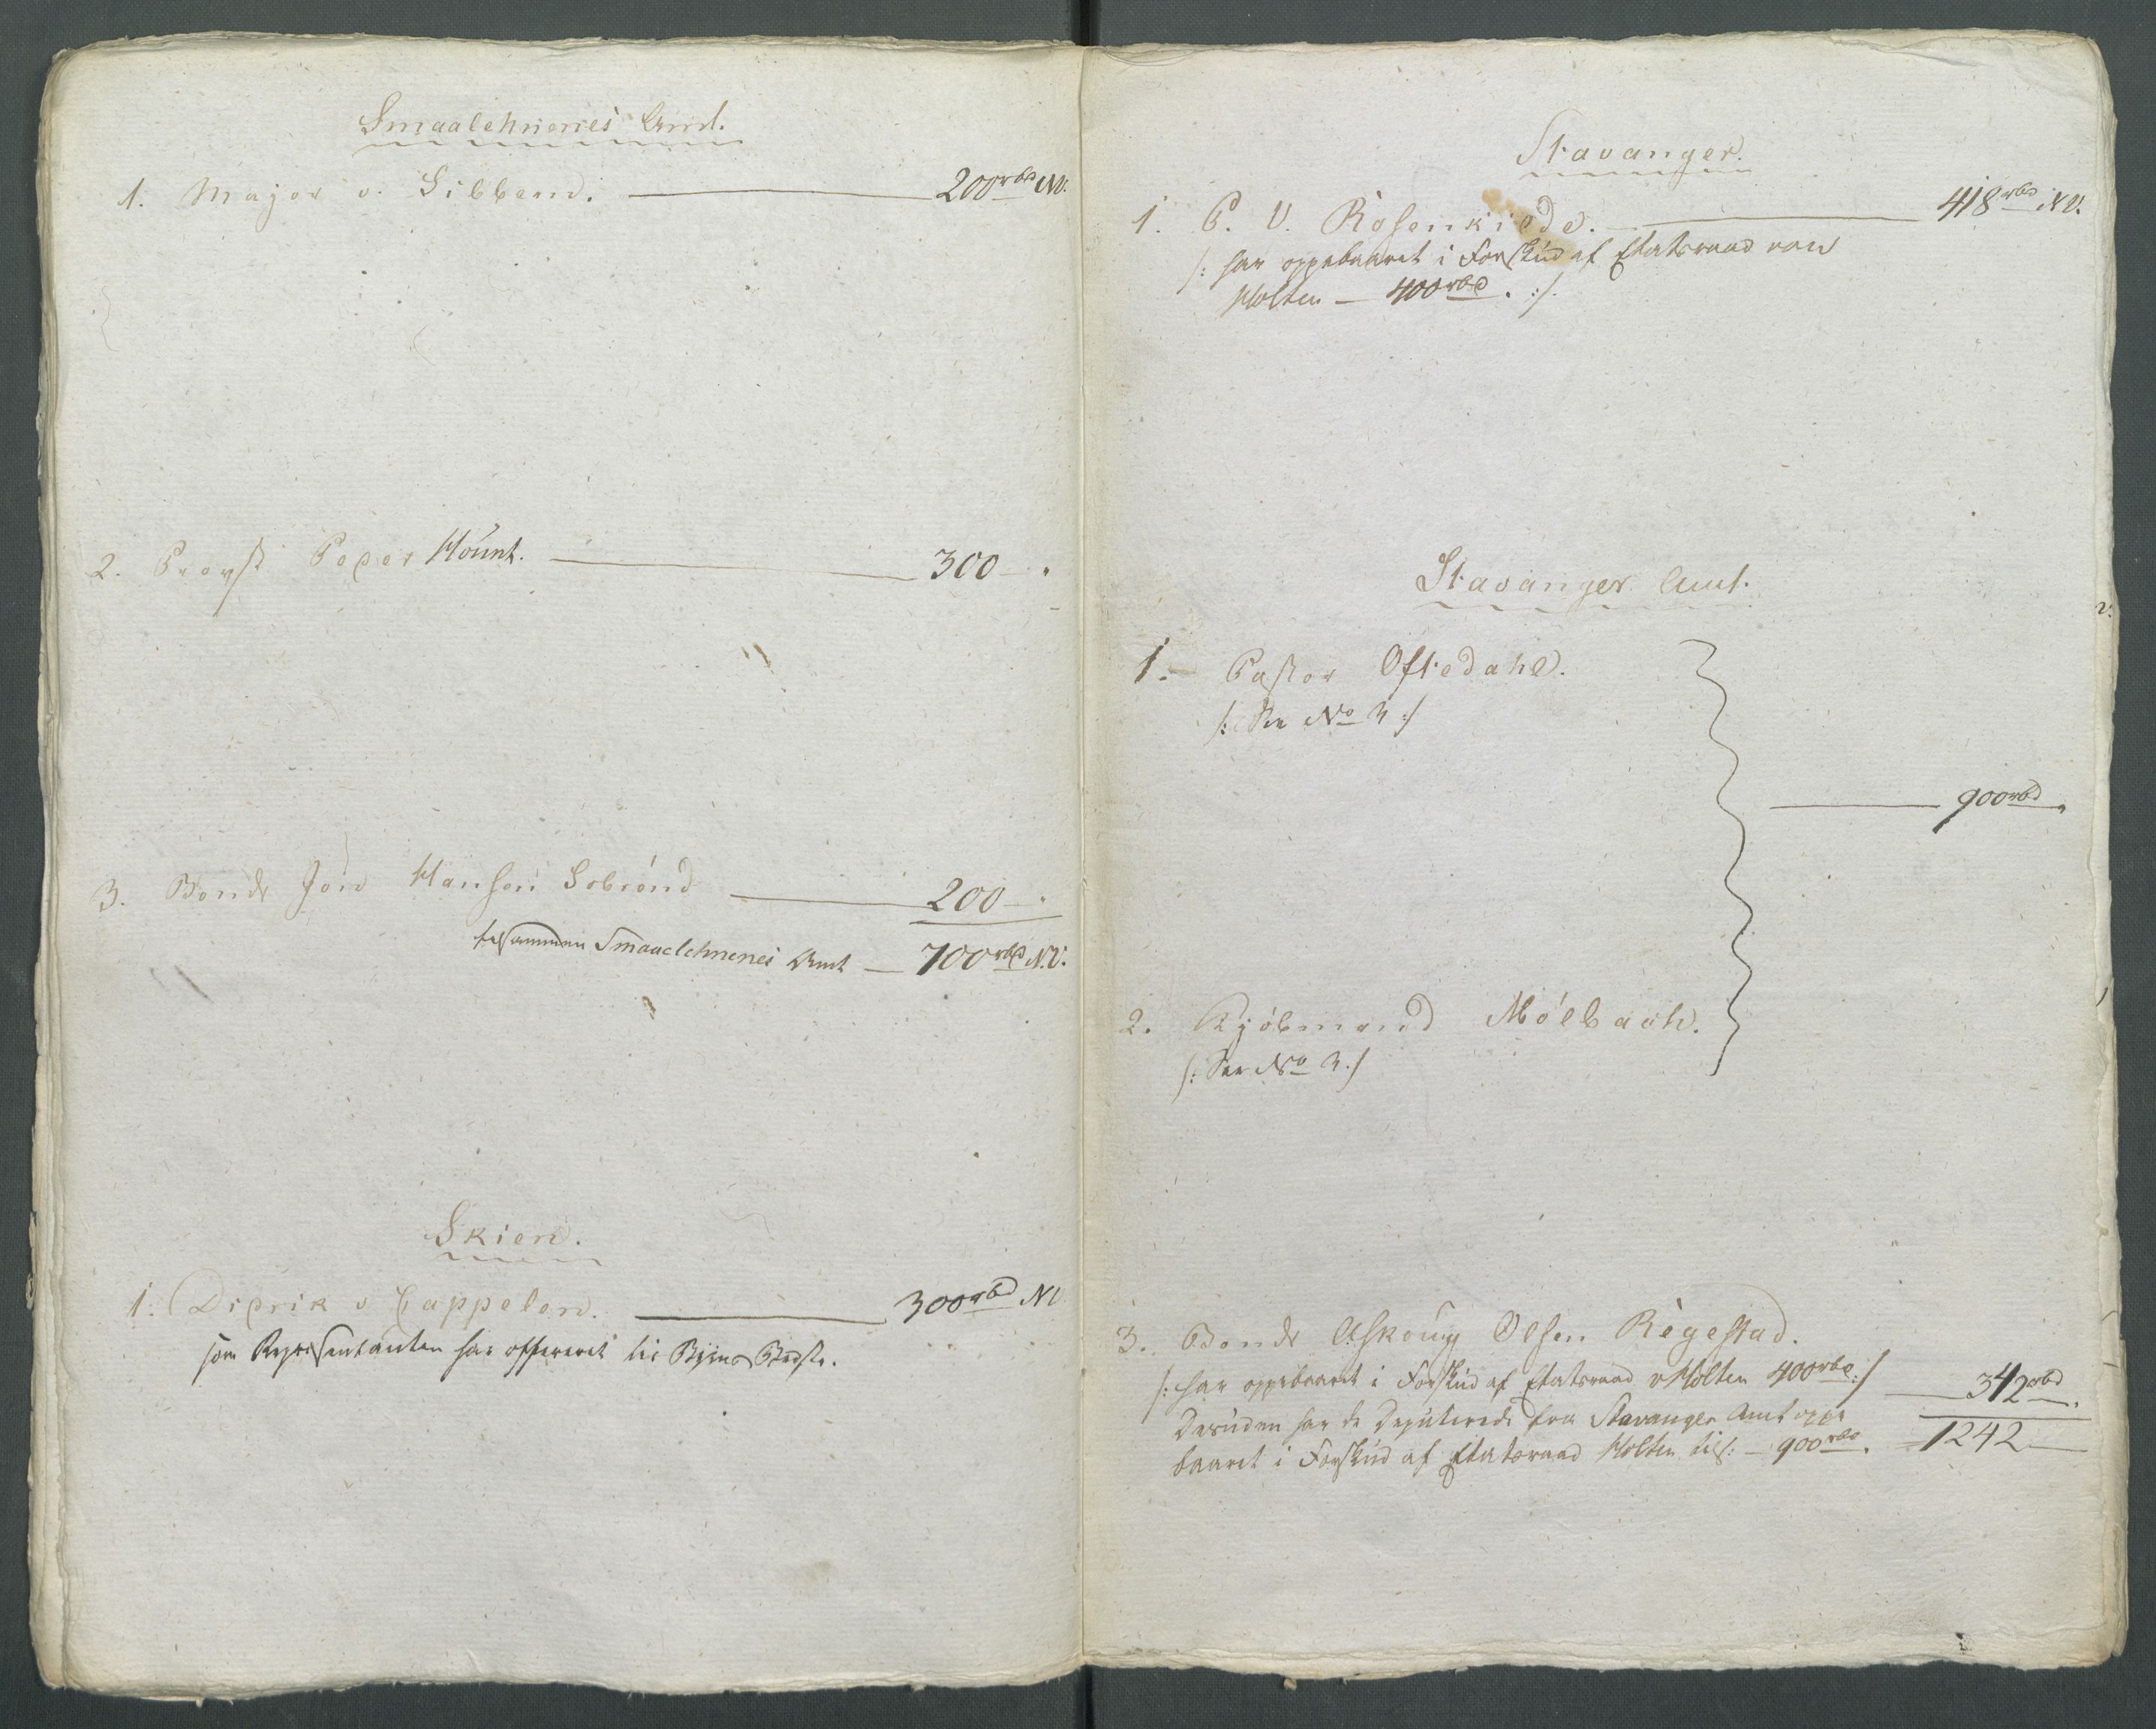 Smaalehnenes Amt.
1. Major v. Sibbern. 200 rbd NV.
2. Provst Peder Hount. 300 — "
3. Bonde Jon Hansen Sobrond 200 — "
tilsammen Smaalehnenes Amt — 700 rbd N.V.
Skien.
1. Diderik v Cappelen. 300 rbd NV
som Repræsentanten har offereret til Byens Bedste.
Stavanger.
1. P. V. Rosenkilde. 418 rbd NV.
/: har oppebaaret i Forskud af Etatsraad von
Holten — 400 rbd. :/.
Stavanger Amt.
1. Pastor Oftedahl.
/: See No 3 :/
900 rbd "
2. Kjöbmand Mölbach.
/: See No 3 :/
3. Bonde Asköug Olsen Regestad.
/: har oppebaaret i Forskud af Etatsraad v Holten 400 rbd :/ 342 rbd.
Desuden har de Deputerede fra Stavanger Amt oppe
baaret i Forskud af Etatsraad Holten tils: — 900 rbd. 1242 —